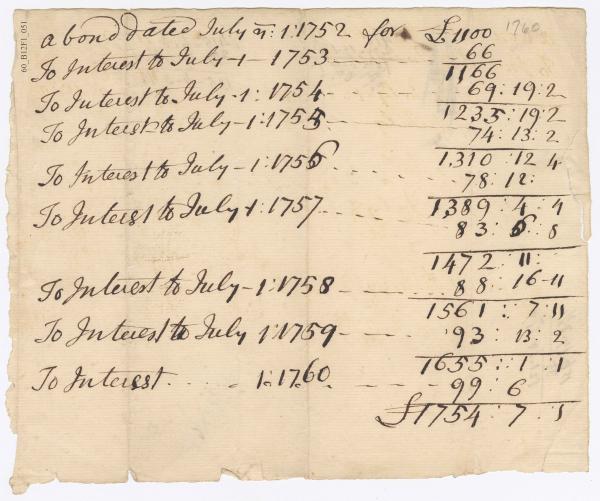 60_B12F1_051
1760
a bond dated July 1: 1752 for £1100
66
To Interest to July - 1 - 1753
1166
69: 19: 2
To Interest to July - 1: 1754
1235: 19: 2
To Interest to July - 1: 1755
74: 13: 2
1310: 12 4
To Interest to July - 1: 1756
78: 12:
To Interest to July - 1: 1757
1389: 4: 4
83: 6: 8
1472 11:
To Interest to July - 1: 1758
88: 16-11
1561: 7: 11
To Interest to July 1: 1759
93: 13: 2
1655: 1: 1
To Interest 1: 1760
99: 6
£1754: 7: 1